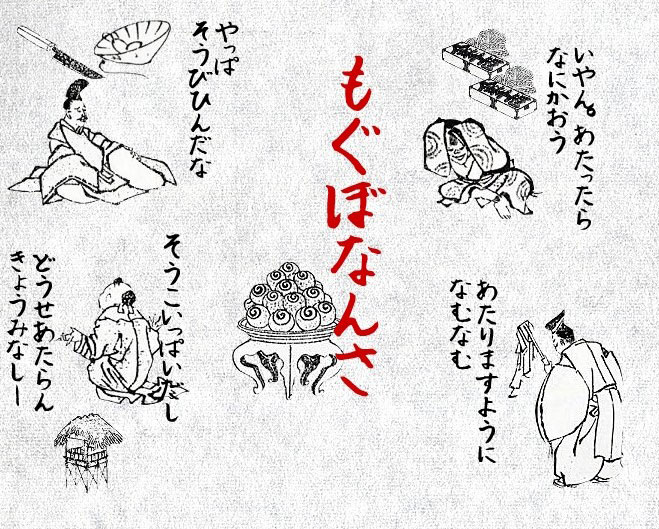 いやん。あたったら
なにかおう
もぐぼなんさ
やっぱ
そうびひんだな
あたりますように
なむなむ
そうこいっぱいだし
どうせあたらん
きょうみなしー